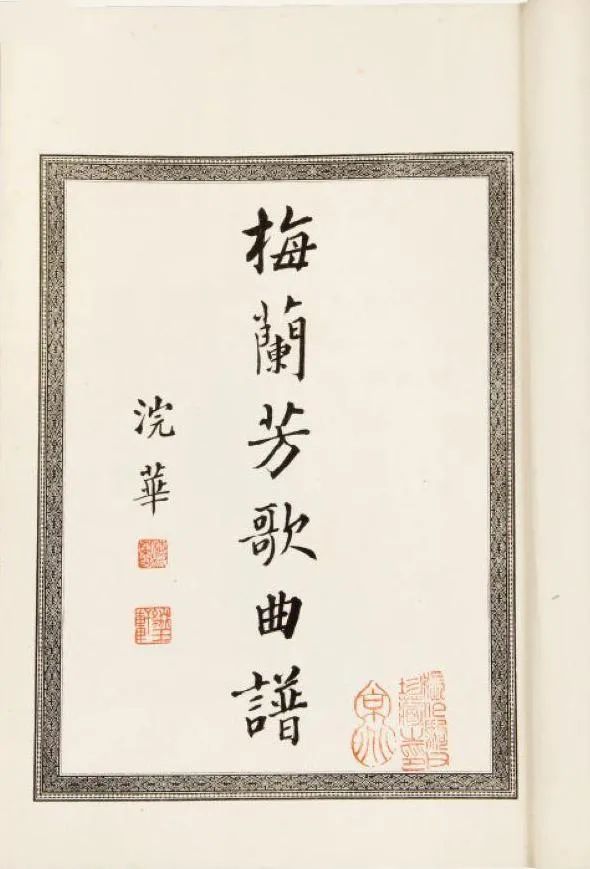 梅蘭芳歌曲譜
浣華